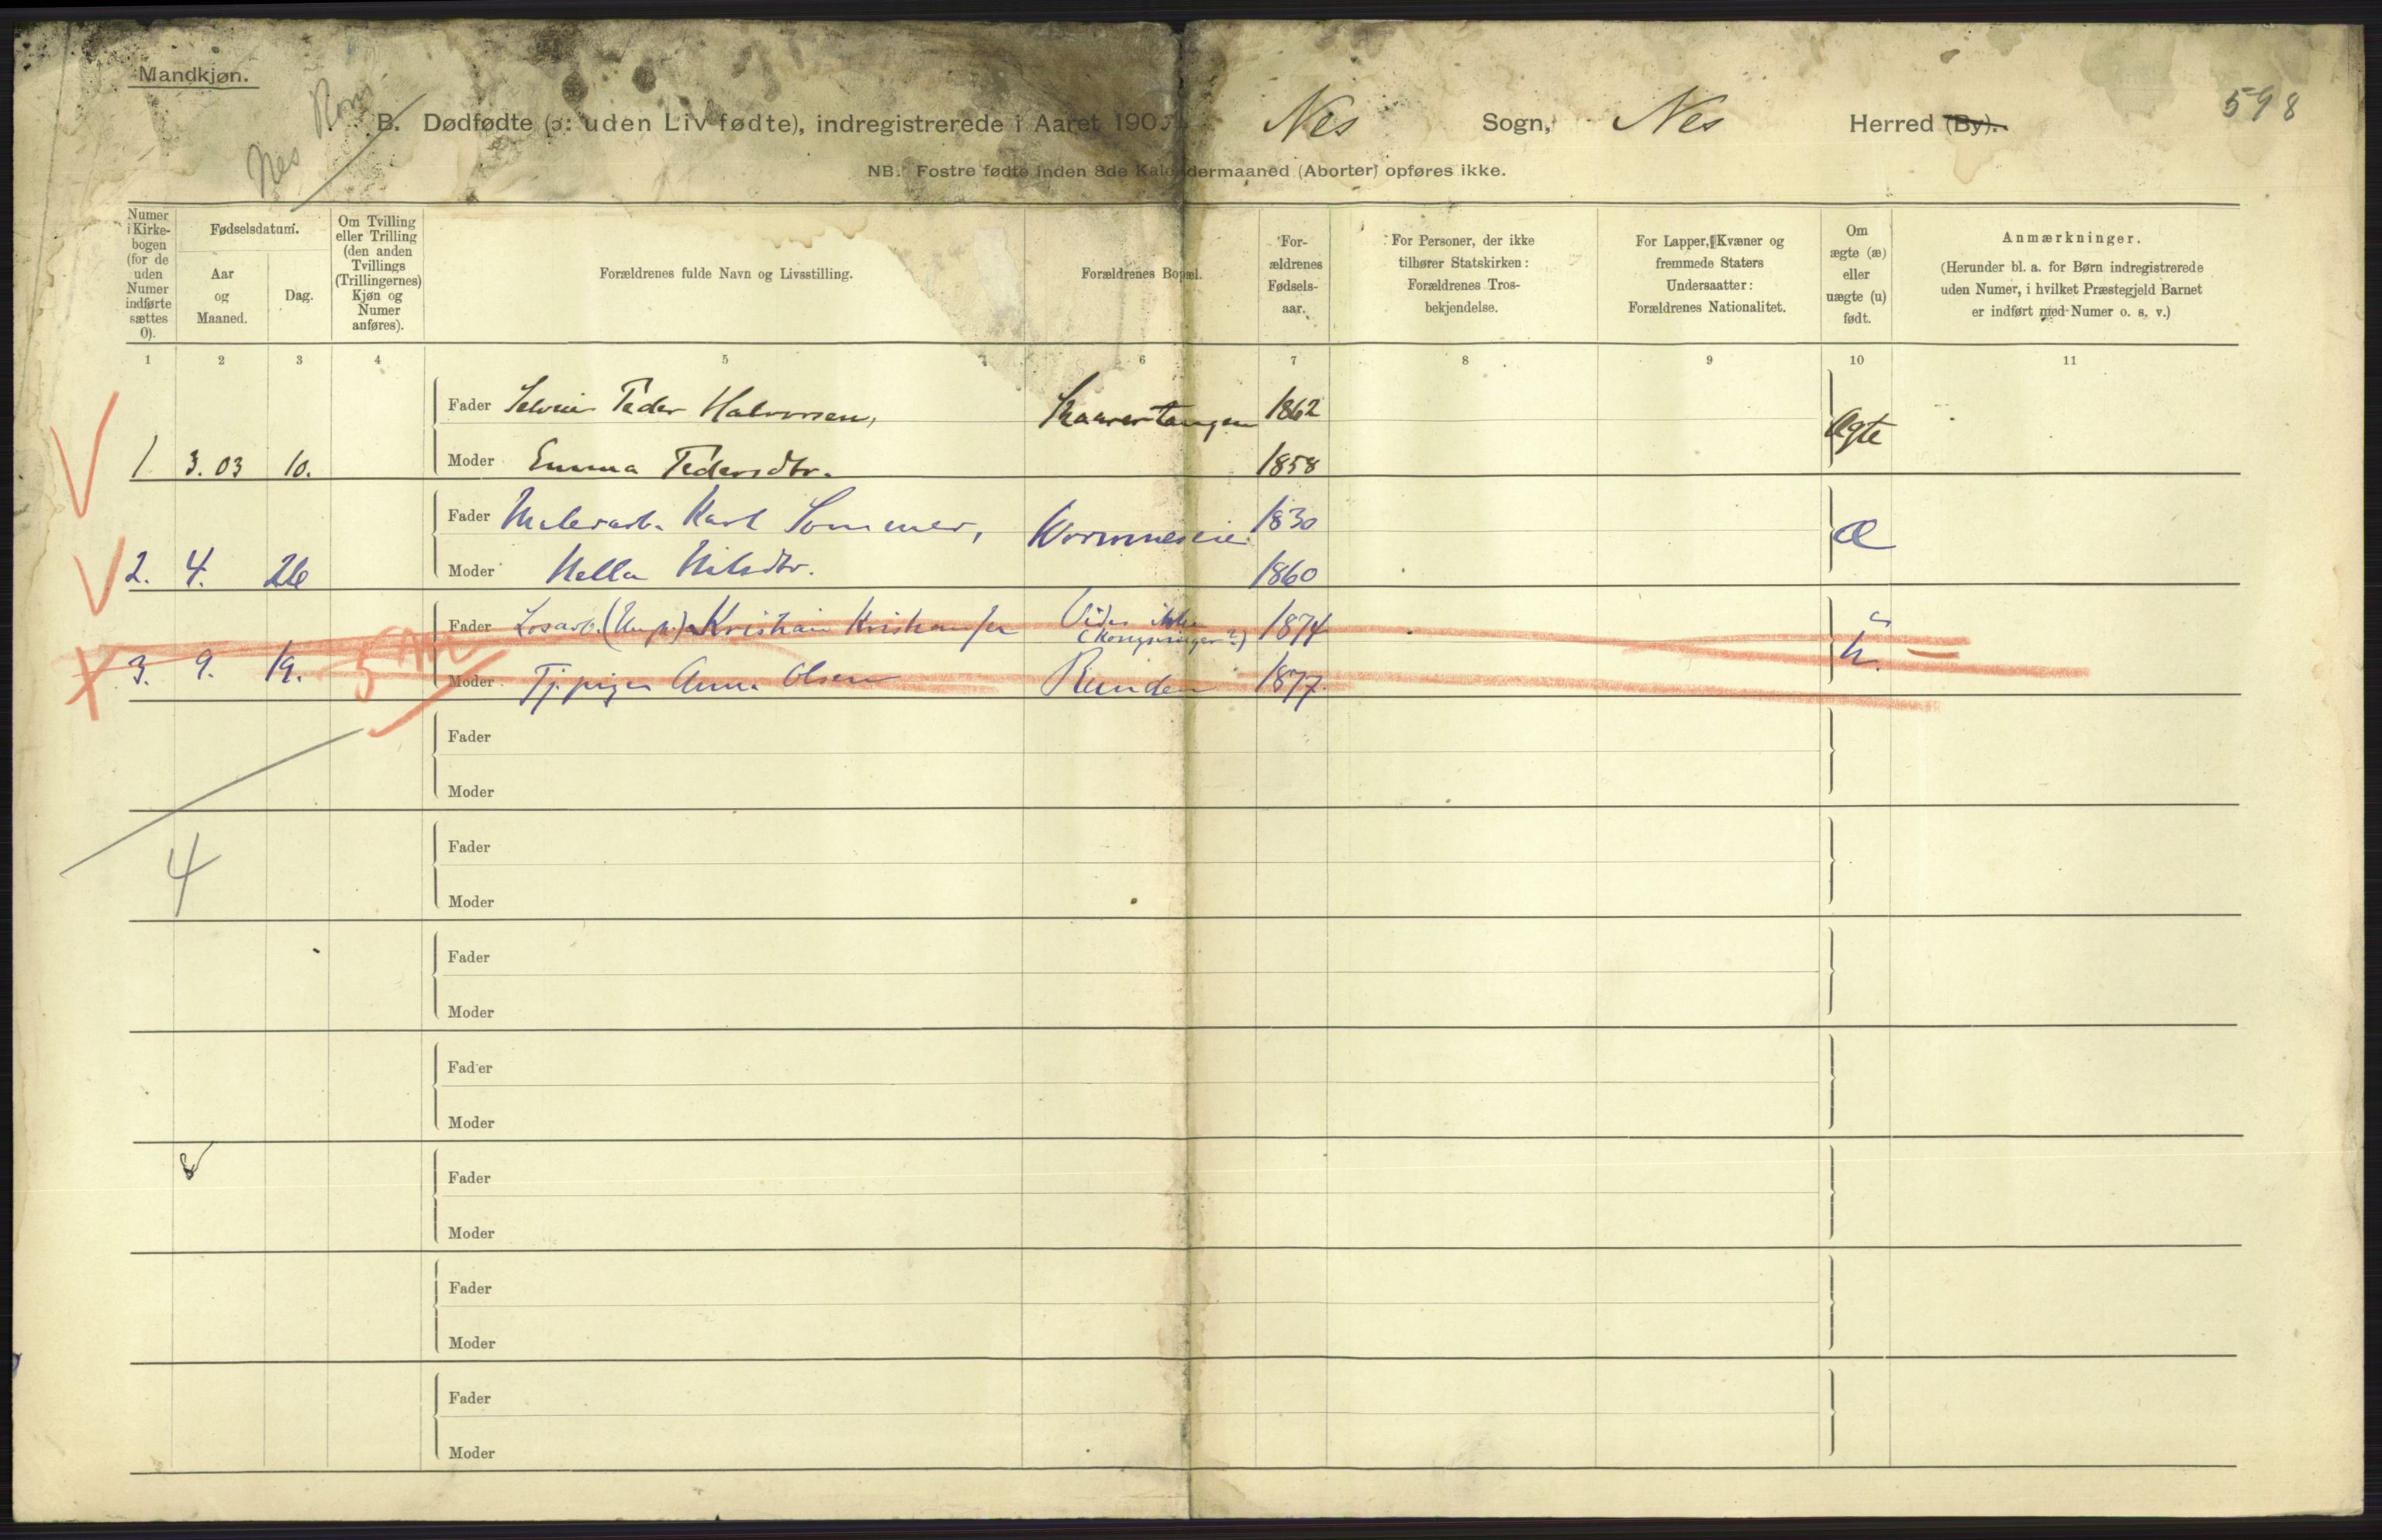 Mandkjøn.
598
Nes Rom.
B. Dødfødte (ɔ: uden Liv fødte), indregistrerede i Aaret 1903 Nes Sogn, Nes Herred (By).
NB. Fostre fødte inden 8de Kalendermaaned (Aborter) opføres ikke.
Numer i Kirke-bogen (for de uden Numer indførte sættes 0).
Fødselsdatum.
Aar og Maaned.
Dag.
Om Tvilling eller Trilling (den anden Tvillings (Trillingernes) Kjøn og Numer anføres).
Forældrenes fulde Navn og Livsstilling.
Forældrenes Bopæl.
For-ældrenes Fødsels-aar.
For Personer, der ikke tilhører Statskirken: Forældrenes Tros-bekjendelse.
For Lapper, Kvæner og fremmede Staters Undersaatter: Forældrenes Nationalitet.
Om ægte (æ) eller uægte (u) født.
Anmærkninger.
(Herunder bl. a. for Børn indregistrerede uden Numer, i hvilket Præstegjeld Barnet er indført med Numer o. s. v.)
1 2 3 4 5 6 7 8 9 10 11
Fader Selveier Peder Halvorsen, Skaarertangen 1862 Ægte
1 3.03 10. Moder Emma Pedersdtr. 1858
Fader Malerarb. Karl Sommer, Wormneseie 1830 Æ
2. 4. 26 Moder Nella Nilsdtr. 1860
Fader Løsarb. (Ungk.) Kristian Kristiansen Vides ikke (Kongsvinger?) 1874 u.
3. 9. 19. Moder Tj.pige Anna Olsen Runden 1877
Fader
Moder
4
Fader
Moder
Fader
Moder
Fader
Moder
Fader
Moder
Fader
Moder
Fader
Moder